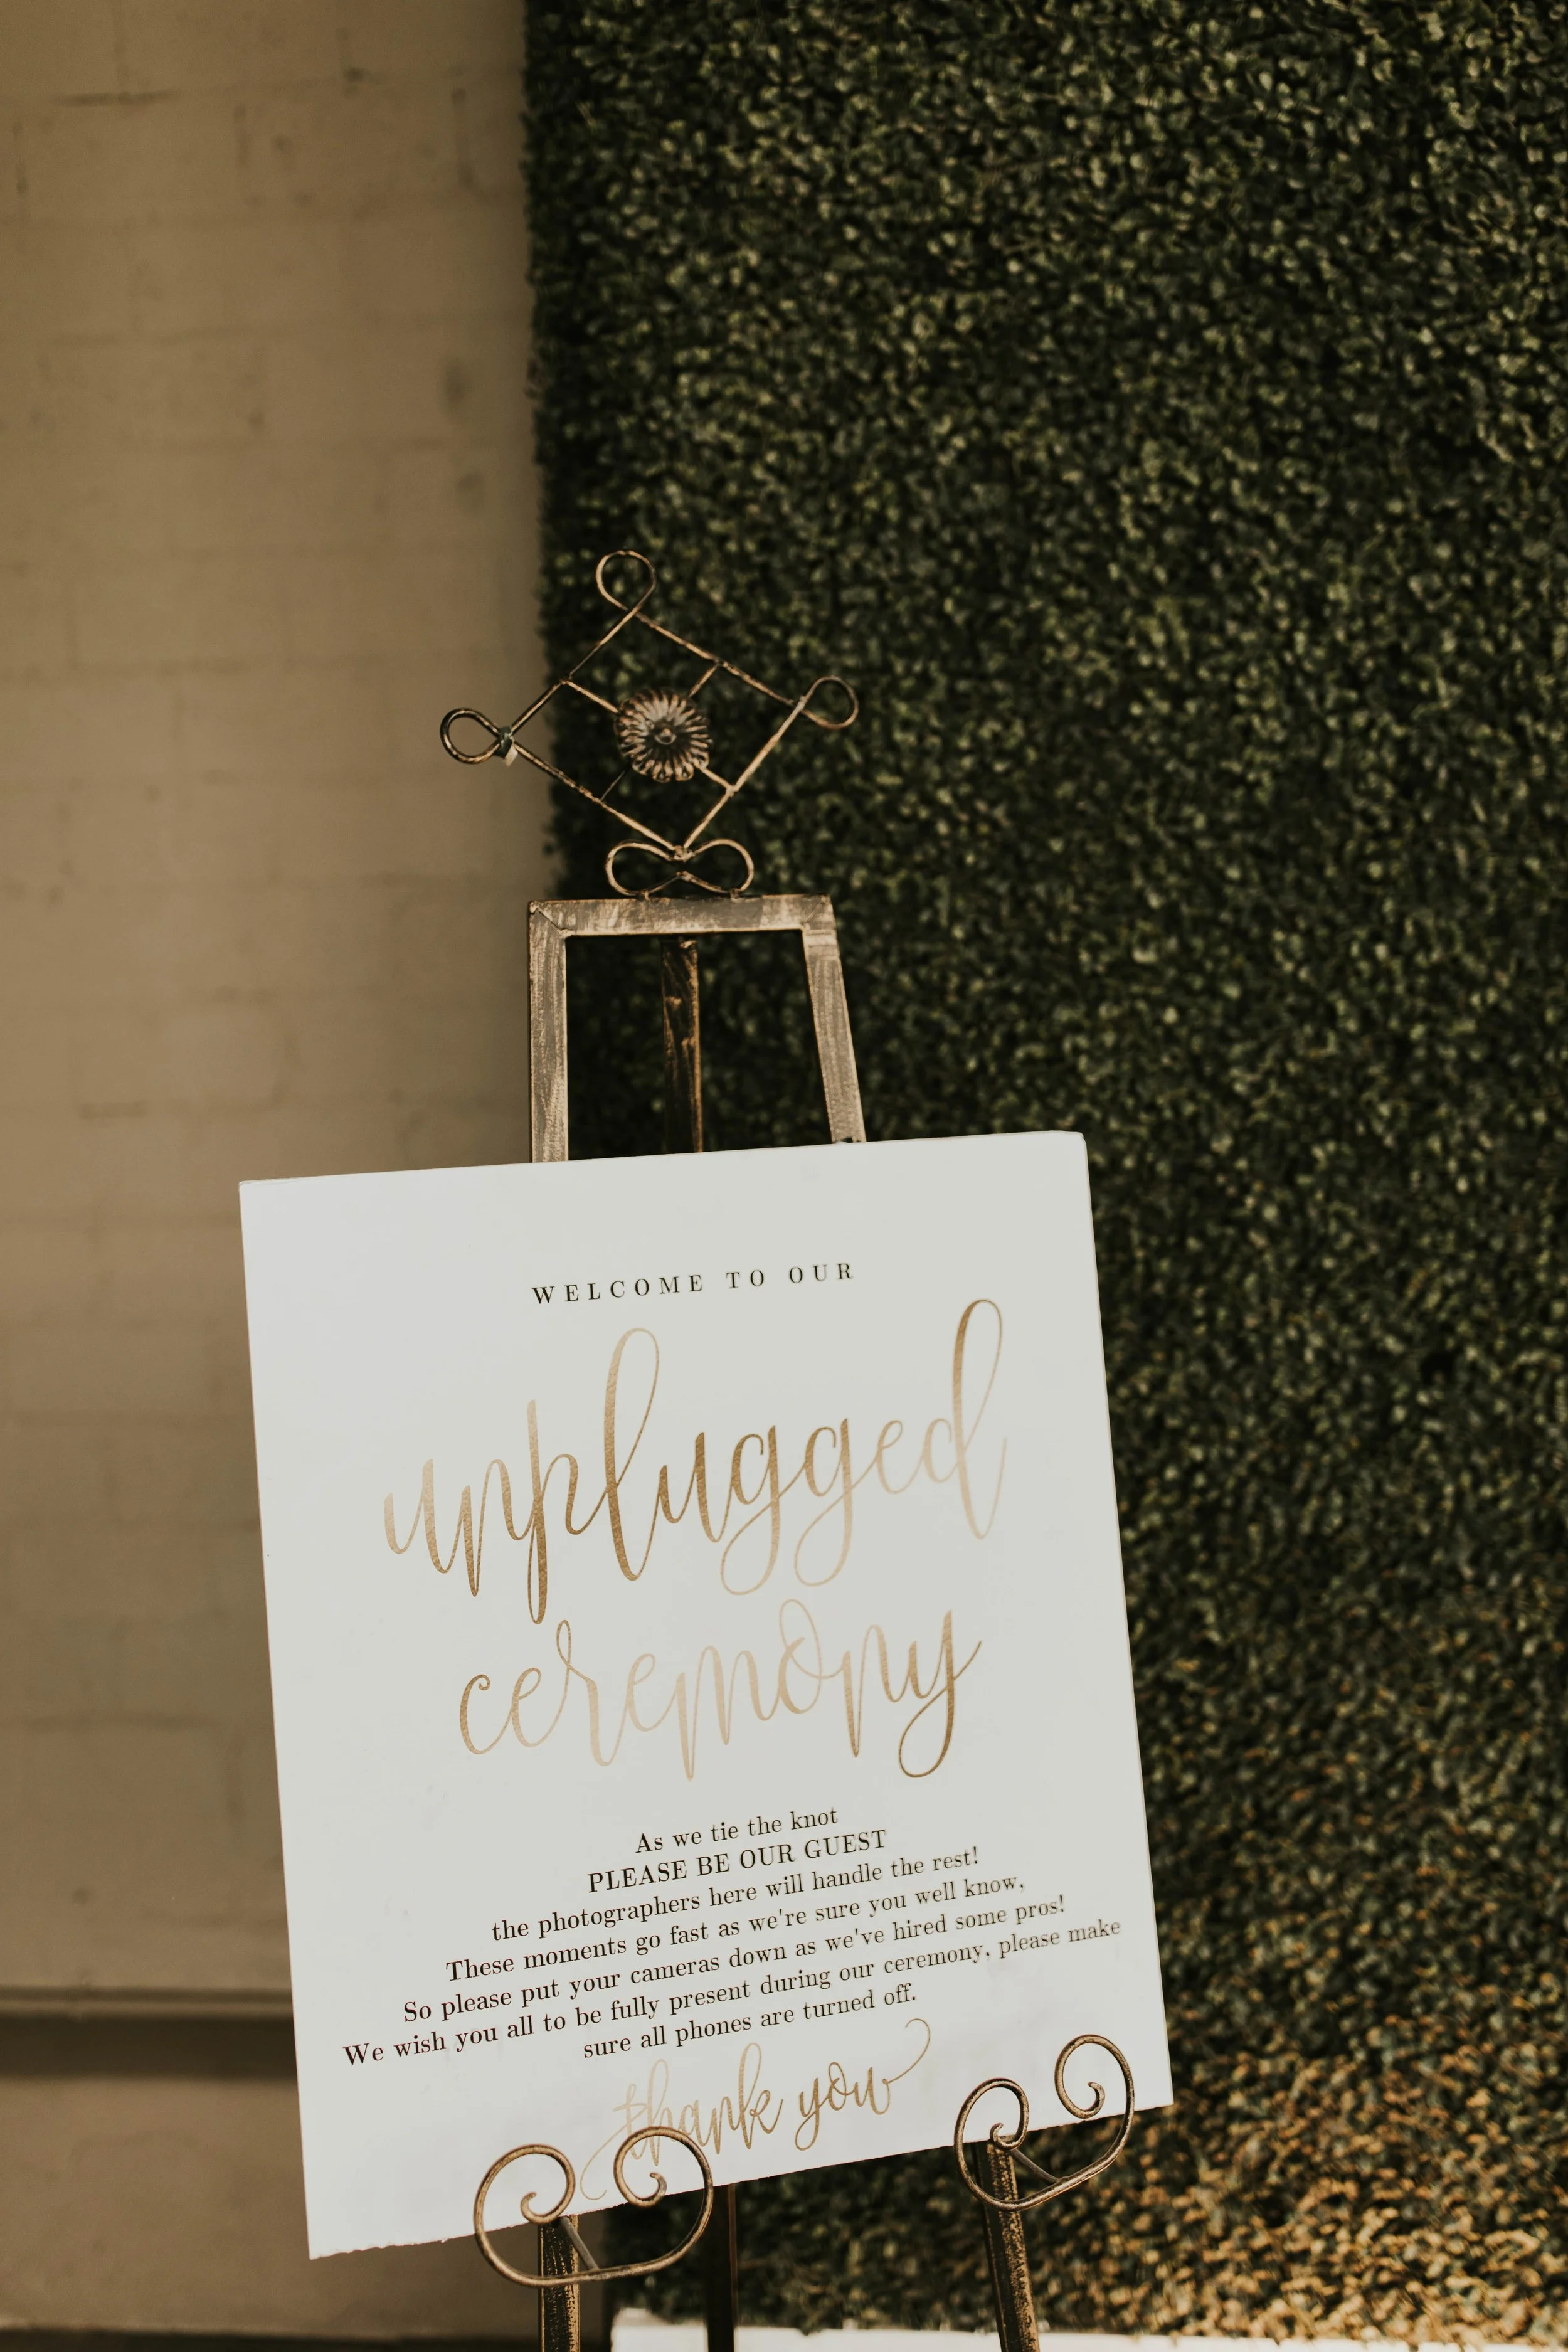 WELCOME TO OUR
unplugged
ceremony
As we tie the knot
PLEASE BE OUR GUEST
the photographers here will handle the rest!
These moments go fast as we're sure you well know,
So please put your cameras down as we've hired some pros!
We wish you all to be fully present during our ceremony, please make
sure all phones are turned off.
thank you